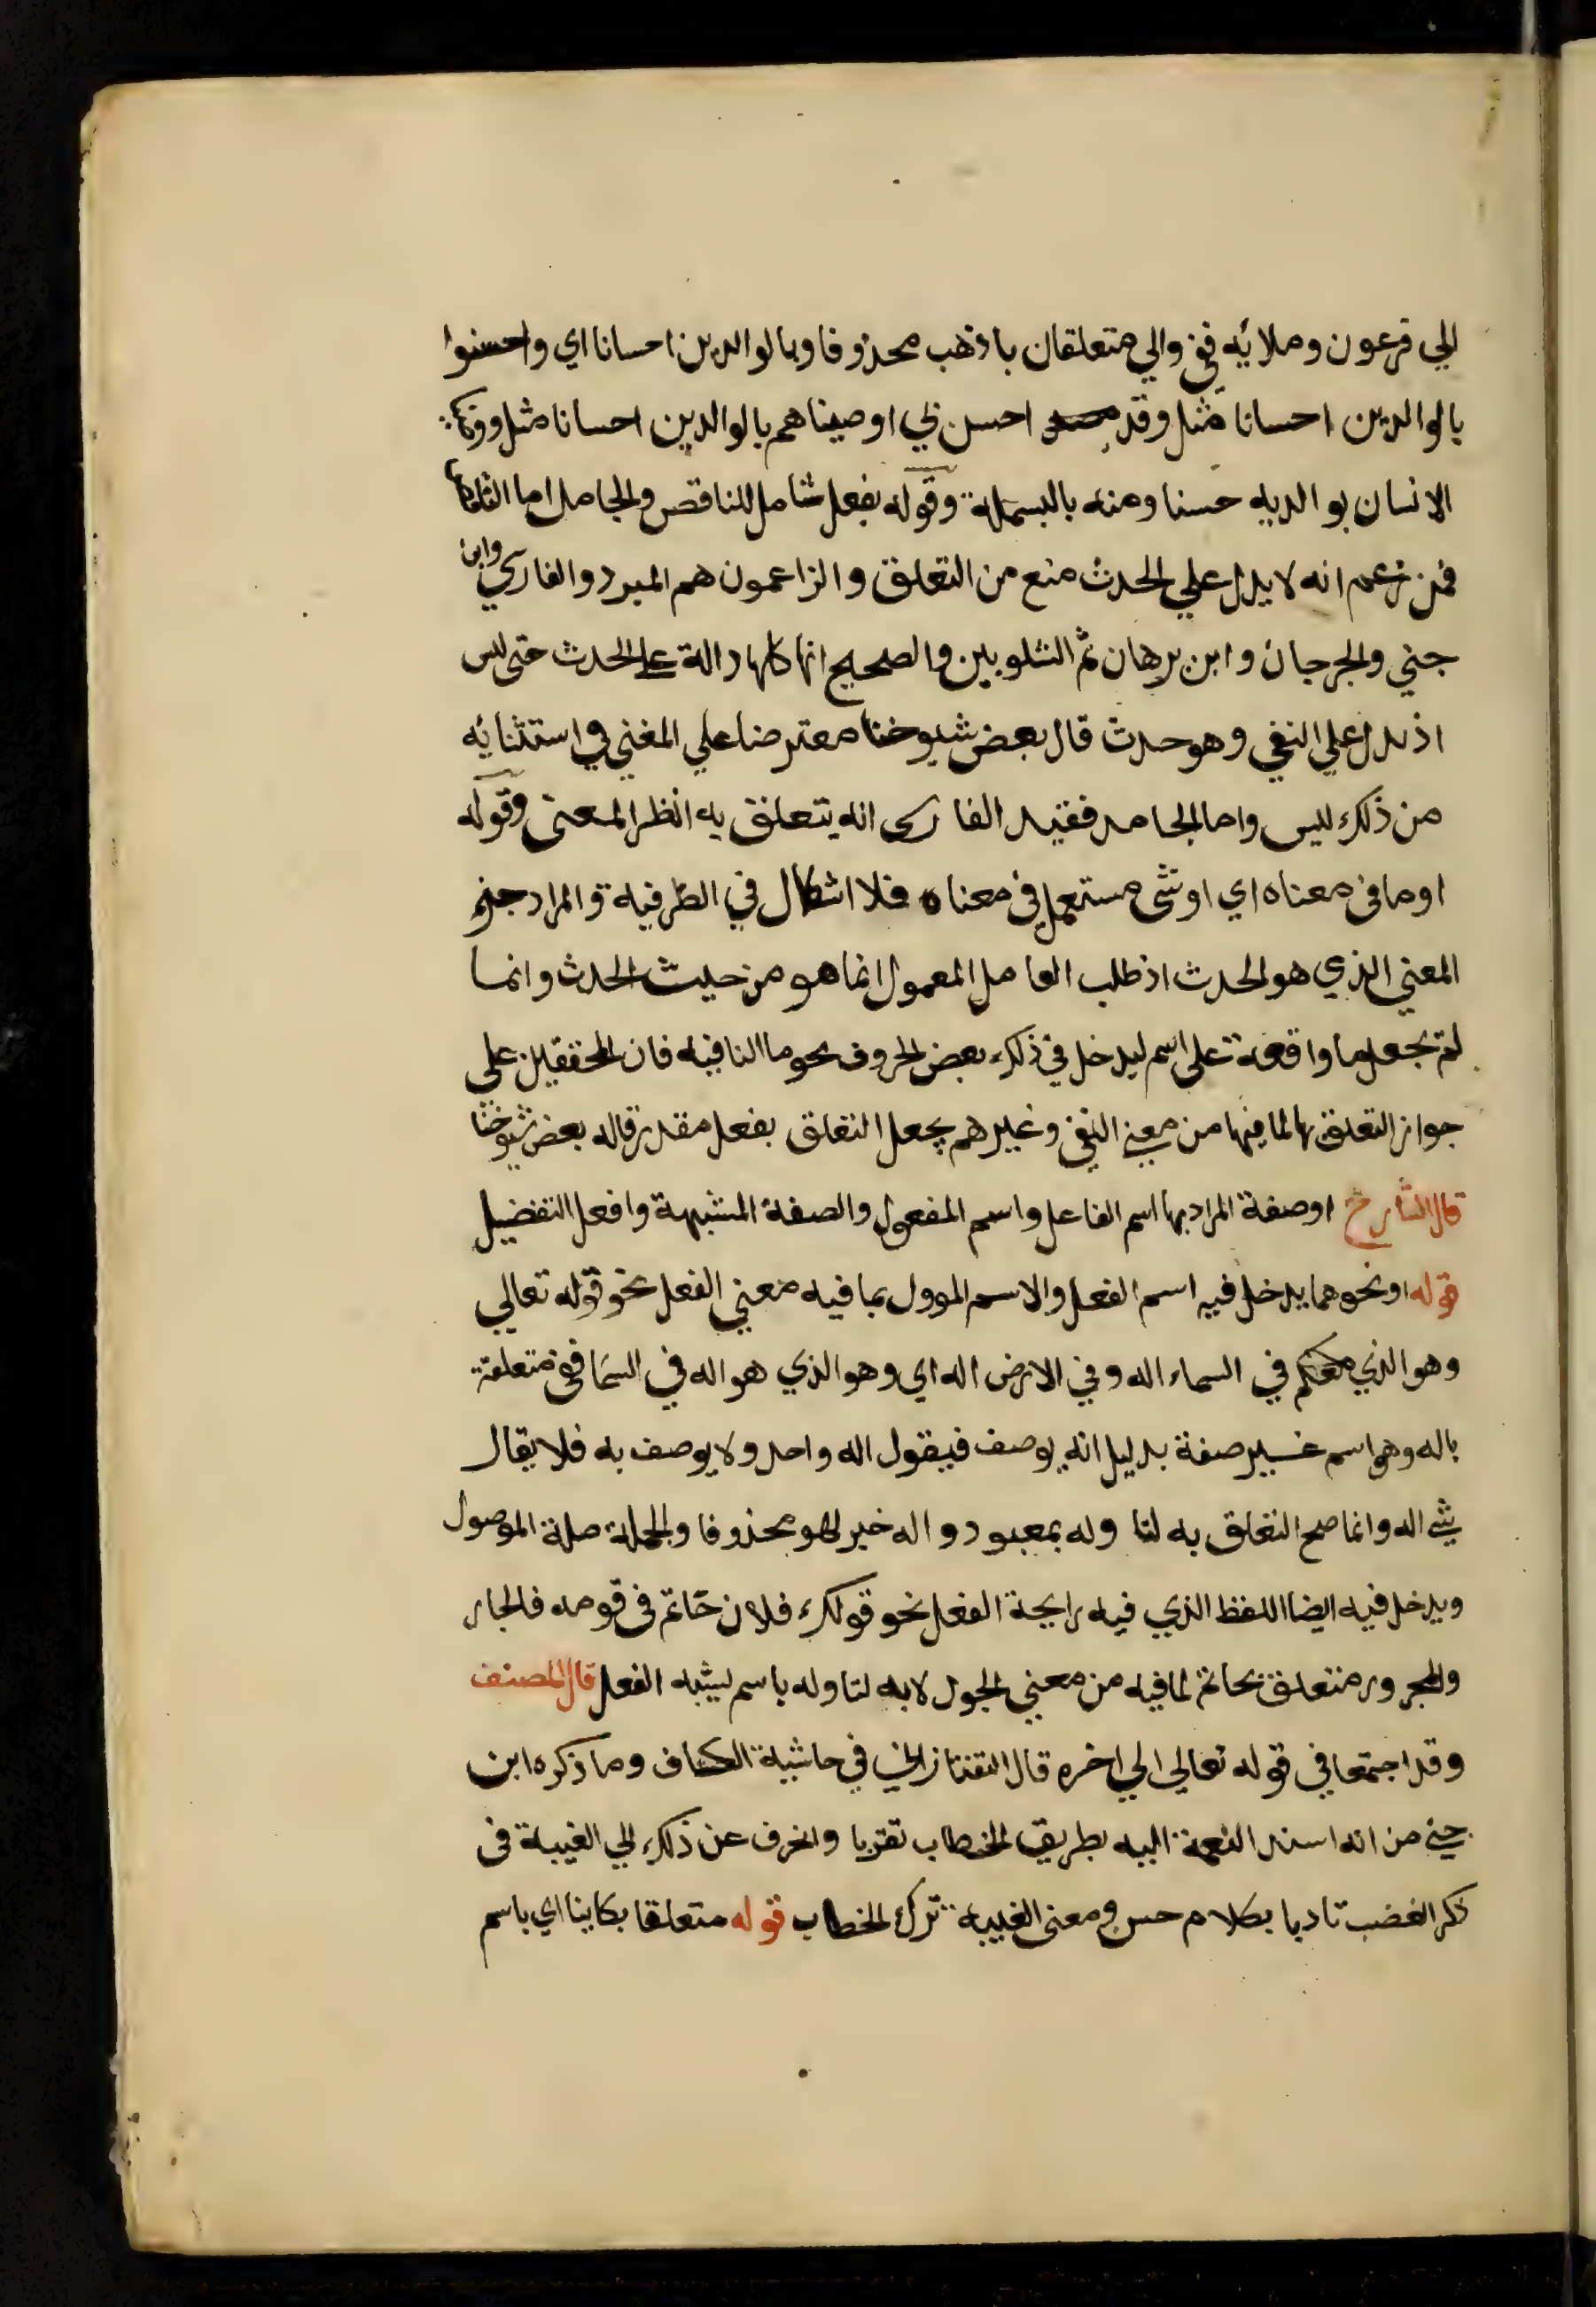 الي فرعون وملائه ففي والي متعلقان باذهب محذوفا وبالوالدين احسانا اي واحسنوا
بالوالدين احسانا مثل وقد احسن بي او صيناهم بالوالدين احسانا مثل ووصينا
الانسان بوالديه حسنا ومنه بالبسملة وقوله بفعل شامل للناقص والجامد اما الناقص
فمن زعم انه لا يدل علي الحدث منع من التعلق والزاعمون هم المبرد والفارسي وابن
جني والجرجاني وابن برهان ثم الشلوبين والصحيح انها كلها دالة علي الحدث حتي ليس
اذ تدل علي النفي وهو حدث قال بعض شيوخنا معترضا علي المغني في استثنائه
من ذلك ليس واما الجامد فقيد الفارسي انه يتعلق به انظر المغني وقوله
او ما في معناه اي او شي مستعمل في معناه فلا اشكال في الظرفية والمراد جزء
المعني الذي هو الحدث اذ طلب العامل المعمول انما هو من حيث الحدث وانما
لم نجعل ما واقعة علي اسم ليدخل في ذلك بعض الحروف نحو ما النافيه فان المحققين علي
جواز التعلق بها لما فيها من معني النفي وغيرهم يجعل التعلق بفعل مقدر قاله بعض شيوخنا
قال الشارح او صفة المراد بها اسم الفاعل واسم المفعول والصفة المشبهة وافعل التفضيل
قوله او نحوهما يدخل فيه اسم الفعل والاسم الموول بما فيه معني الفعل نحو قوله تعالي
وهو الذي في السماء اله وفي الارض اله اي وهو الذي هو اله في السما ففي متعلقة
باله وهو اسم غير صفة بدليل انه يوصف فيقول اله واحد ولا يوصف به فلا يقال
شي اله وانما صح التعلق به لتاوله بمعبود واله خبر لهو محذوفا والجملة صلة الموصول
ويدخل فيه ايضا اللفظ الذي فيه رايحة الفعل نحو قولك فلان حاتم في قومه فالجار
والمجرور متعلق بحاتم لما فيه من معني الجود لا به لتاوله باسم يشبه الفعل قال المصنف
وقد اجتمعا في قوله تعالي الي اخره قال التفتازاني في حاشية الكشاف وما ذكره ابن
جني من انه اسند النعمة اليه بطريق الخطاب تقربا وانحرف عن ذلك الي الغيبة في
ذكر الغضب تادبا بكلام حسن ومعني الغيبة ترك الخطاب قوله متعلقا بكاينا اي باسم